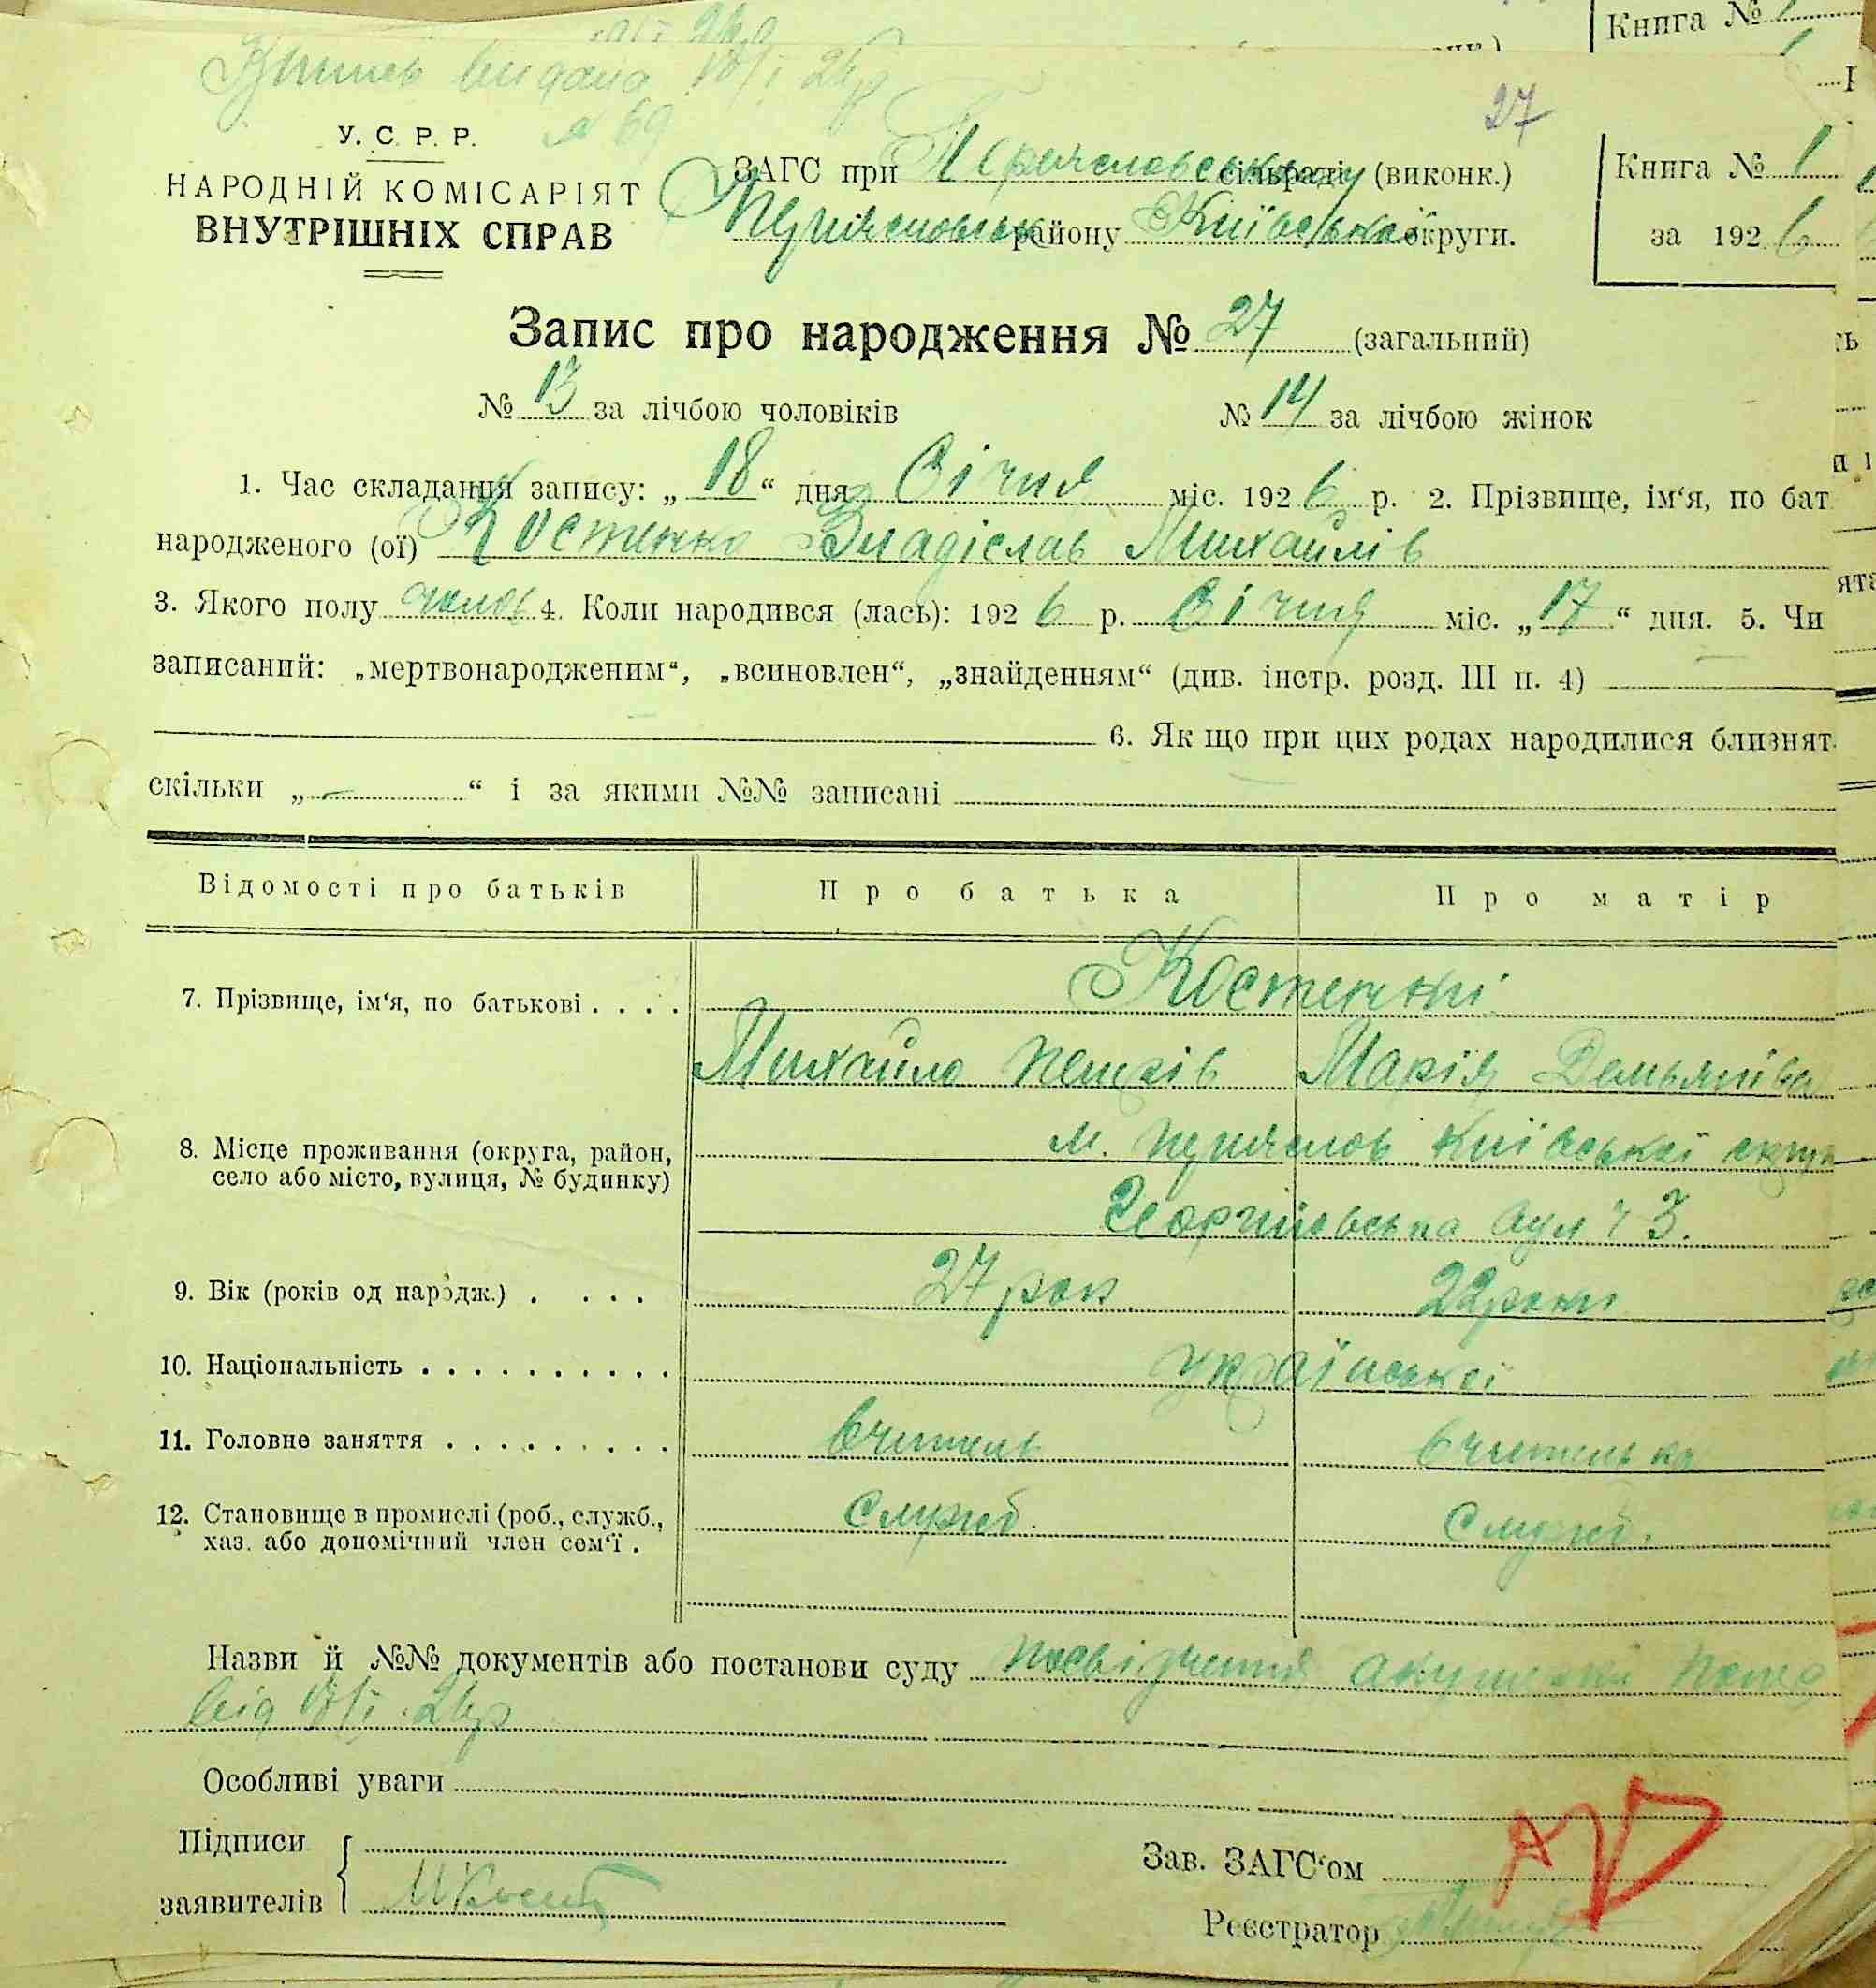 Книга №
Виписъ видана 18/I 26р
№ 69
27
У. С. Р. Р.
НАРОДНІЙ КОМІСАРІЯТ
ВНУТРІШНІХ СПРАВ
ЗАГС при Переясловському сільраді (виконк.)
району Київської округи.
Книга № 1
за 192 6
Запис про народження № 27 (загальний)
№ 13 за лічбою чоловіків № 14 за лічбою жінок
1. Час складання запису: „ 18 “ дня Січня міс. 192 6 р. 2. Прізвище, ім‘я, по бат
народженого (ої) Костенко Владіслав Михайлів
3. Якого полу чолов 4. Коли народився (лась): 192 6 р. Січня міс. „ 17 “ дня. 5. Чи
записаний: „мертвонародженим“, „всиновлен“, „знайденням“ (див. інстр. розд. III п. 4)
6. Як що при цих родах народилися близнят
скільки „ — “ і за якими №№ записані
Відомості про батьків Про батька Про матір
7. Прізвище, ім‘я, по батькові . . . . Костенкі
Михайло Петрів Марія Демьянівна
8. Місце проживання (округа, район,
село або місто, вулиця, № будинку)
м. Переяслов Київської округ
Георгіївська вул ч 3.
9. Вік (років од народж.) . . . . 27 рок 22 роки
10. Національність . . . . . . . . . . української
11. Головне заняття . . . . . . . . . Вчитель Вчителька
12. Становище в промислі (роб., служб.,
хаз. або допомічний член сем‘ї .
Служб. Служб.
Назви й №№ документів або постанови суду посвідчення акушерки
від 18/I 26р
Особливі уваги
Підписи
заявителів
М Кост
Зав. ЗАГС‘ом
Реєстратор